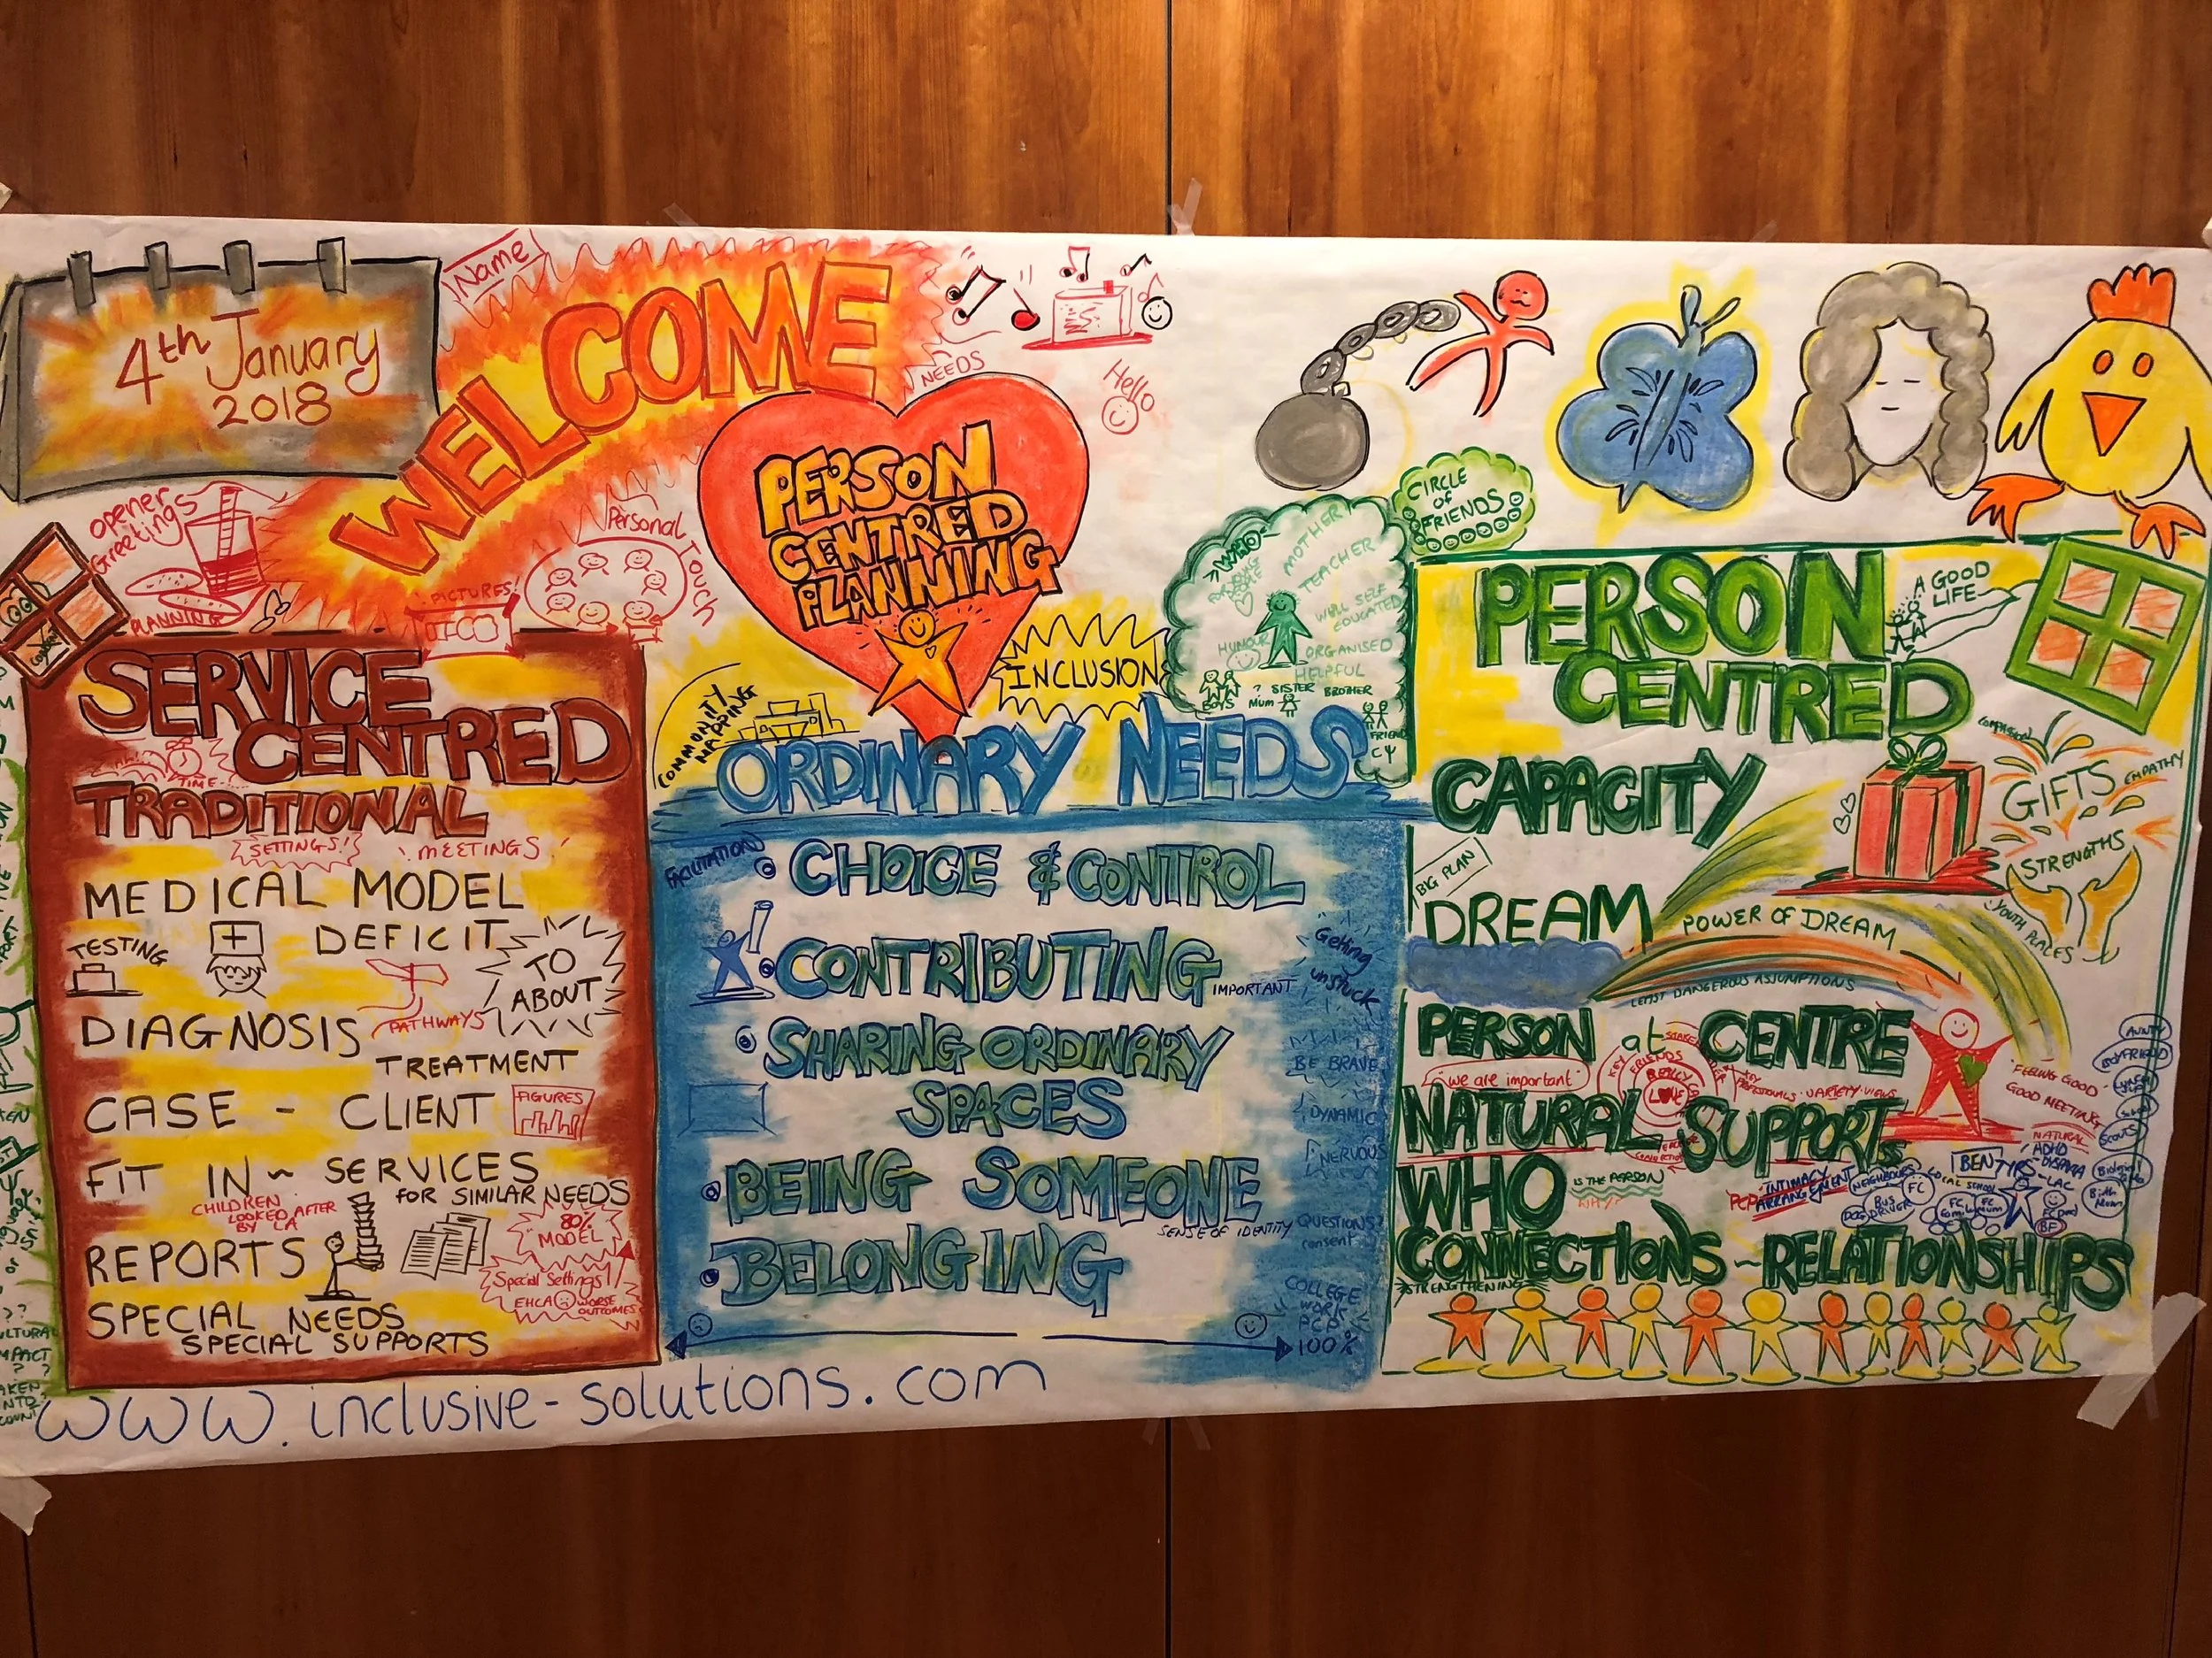 4th January
2018
Name
WELCOME
NEEDS
Hello
opener
Greetings
PLANNING
PICTURES!
Personal
Touch
PERSON
CENTRED
PLANNING
INCLUSION
COMMUNITY
MAPPING
SERVICE
CENTRED
TIME
TRADITIONAL
SETTINGS!
MEETINGS
MEDICAL MODEL
TESTING
DEFICIT
TO
ABOUT
PATHWAYS
DIAGNOSIS
TREATMENT
CASE - CLIENT
FIGURES
FIT IN~ SERVICES
FOR SIMILAR NEEDS
CHILDREN
LOOKED AFTER
BY LA
80%
MODEL
REPORTS
Special Settings!
EHCA WORSE
OUTCOMES
SPECIAL NEEDS
SPECIAL SUPPORTS
www.inclusive-solutions.com
ORDINARY NEEDS
FACILITATION
CHOICE & CONTROL
CONTRIBUTING
IMPORTANT
Getting
unstuck
SHARING ORDINARY
SPACES
BE BRAVE
DYNAMIC
NERVOUS
BEING SOMEONE
SENSE OF IDENTITY
QUESTIONS?
consent
BELONGING
COLLEGE
WORK
PCP
100%
CIRCLE
of
FRIENDS
WHO
MOTHER
TEACHER
WELL SELF
EDUCATED
HUMOUR
ORGANISED
HELPFUL
SISTER BROTHER
BOYS
MUM
FRIEND
PERSON
CENTRED
A GOOD
LIFE
CAPACITY
GIFTS
EMPATHY
STRENGTHS
YOUTH PLACES
BIG PLAN
DREAM
POWER OF DREAM
LEAST DANGEROUS ASSUMPTIONS
PERSON at CENTRE
we are important
KEY FRIENDS
REALLY
LOVE
VARIETY VIEWS
FEELING GOOD
GOOD MEETING
NATURAL SUPPORTS
NATURAL
WHO
IS THE PERSON
WHY?
PCP
INTIMACY
ARRANGEMENT
NEIGHBOURS
LOCAL SCHOOL
BEN
ADHD
LAC
BUS
DRIVER
FC
Birth
Mum
BF
SCOUTS
CONNECTIONS ~ RELATIONSHIPS
STRENGTHENING